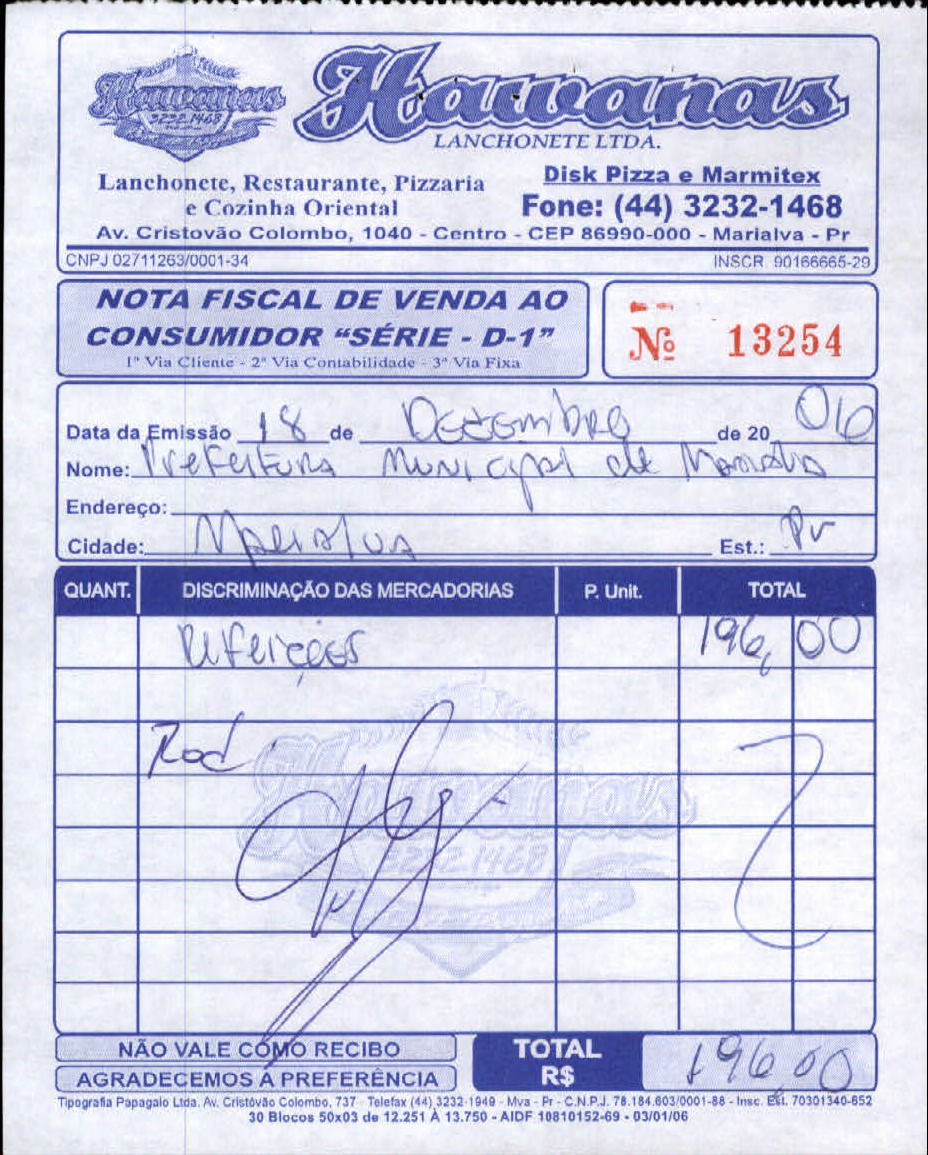 Hawanas
3232.1468
Hawanas
LANCHONETE LTDA.
Lanchonete, Restaurante, Pizzaria
e Cozinha Oriental
Disk Pizza e Marmitex
Fone: (44) 3232-1468
Av. Cristovão Colombo, 1040 - Centro - CEP 86990-000 - Marialva - Pr
CNPJ 02711263/0001-34 INSCR. 90166665-29
NOTA FISCAL DE VENDA AO
CONSUMIDOR “SÉRIE - D-1”
1ª Via Cliente - 2ª Via Contabilidade - 3ª Via Fixa
Nº 13254
Data da Emissão 18 de Dezembro de 20 06
Nome: Prefeitura Municipal de Marialva
Endereço:
Cidade: Marialva Est.: Pr
QUANT. DISCRIMINAÇÃO DAS MERCADORIAS P. Unit. TOTAL
Refeições 196,00
Rod
Hawanas
3232.1468
NÃO VALE COMO RECIBO
AGRADECEMOS A PREFERÊNCIA
TOTAL
R$ 196,00
Tipografia Papagaio Ltda. Av. Cristóvão Colombo, 737 - Telefax (44) 3232-1949 - Mva - Pr - C.N.P.J. 78.184.603/0001-88 - Insc. Est. 70301340-652
30 Blocos 50x03 de 12.251 À 13.750 - AIDF 10810152-69 - 03/01/06